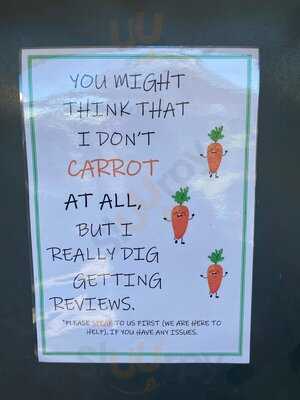 YOU MIGHT
THINK THAT
I DON'T
CARROT
AT ALL,
BUT I
REALLY DIG
GETTING
REVIEWS.
*PLEASE SPEAK TO US FIRST (WE ARE HERE TO
HELP), IF YOU HAVE ANY ISSUES.